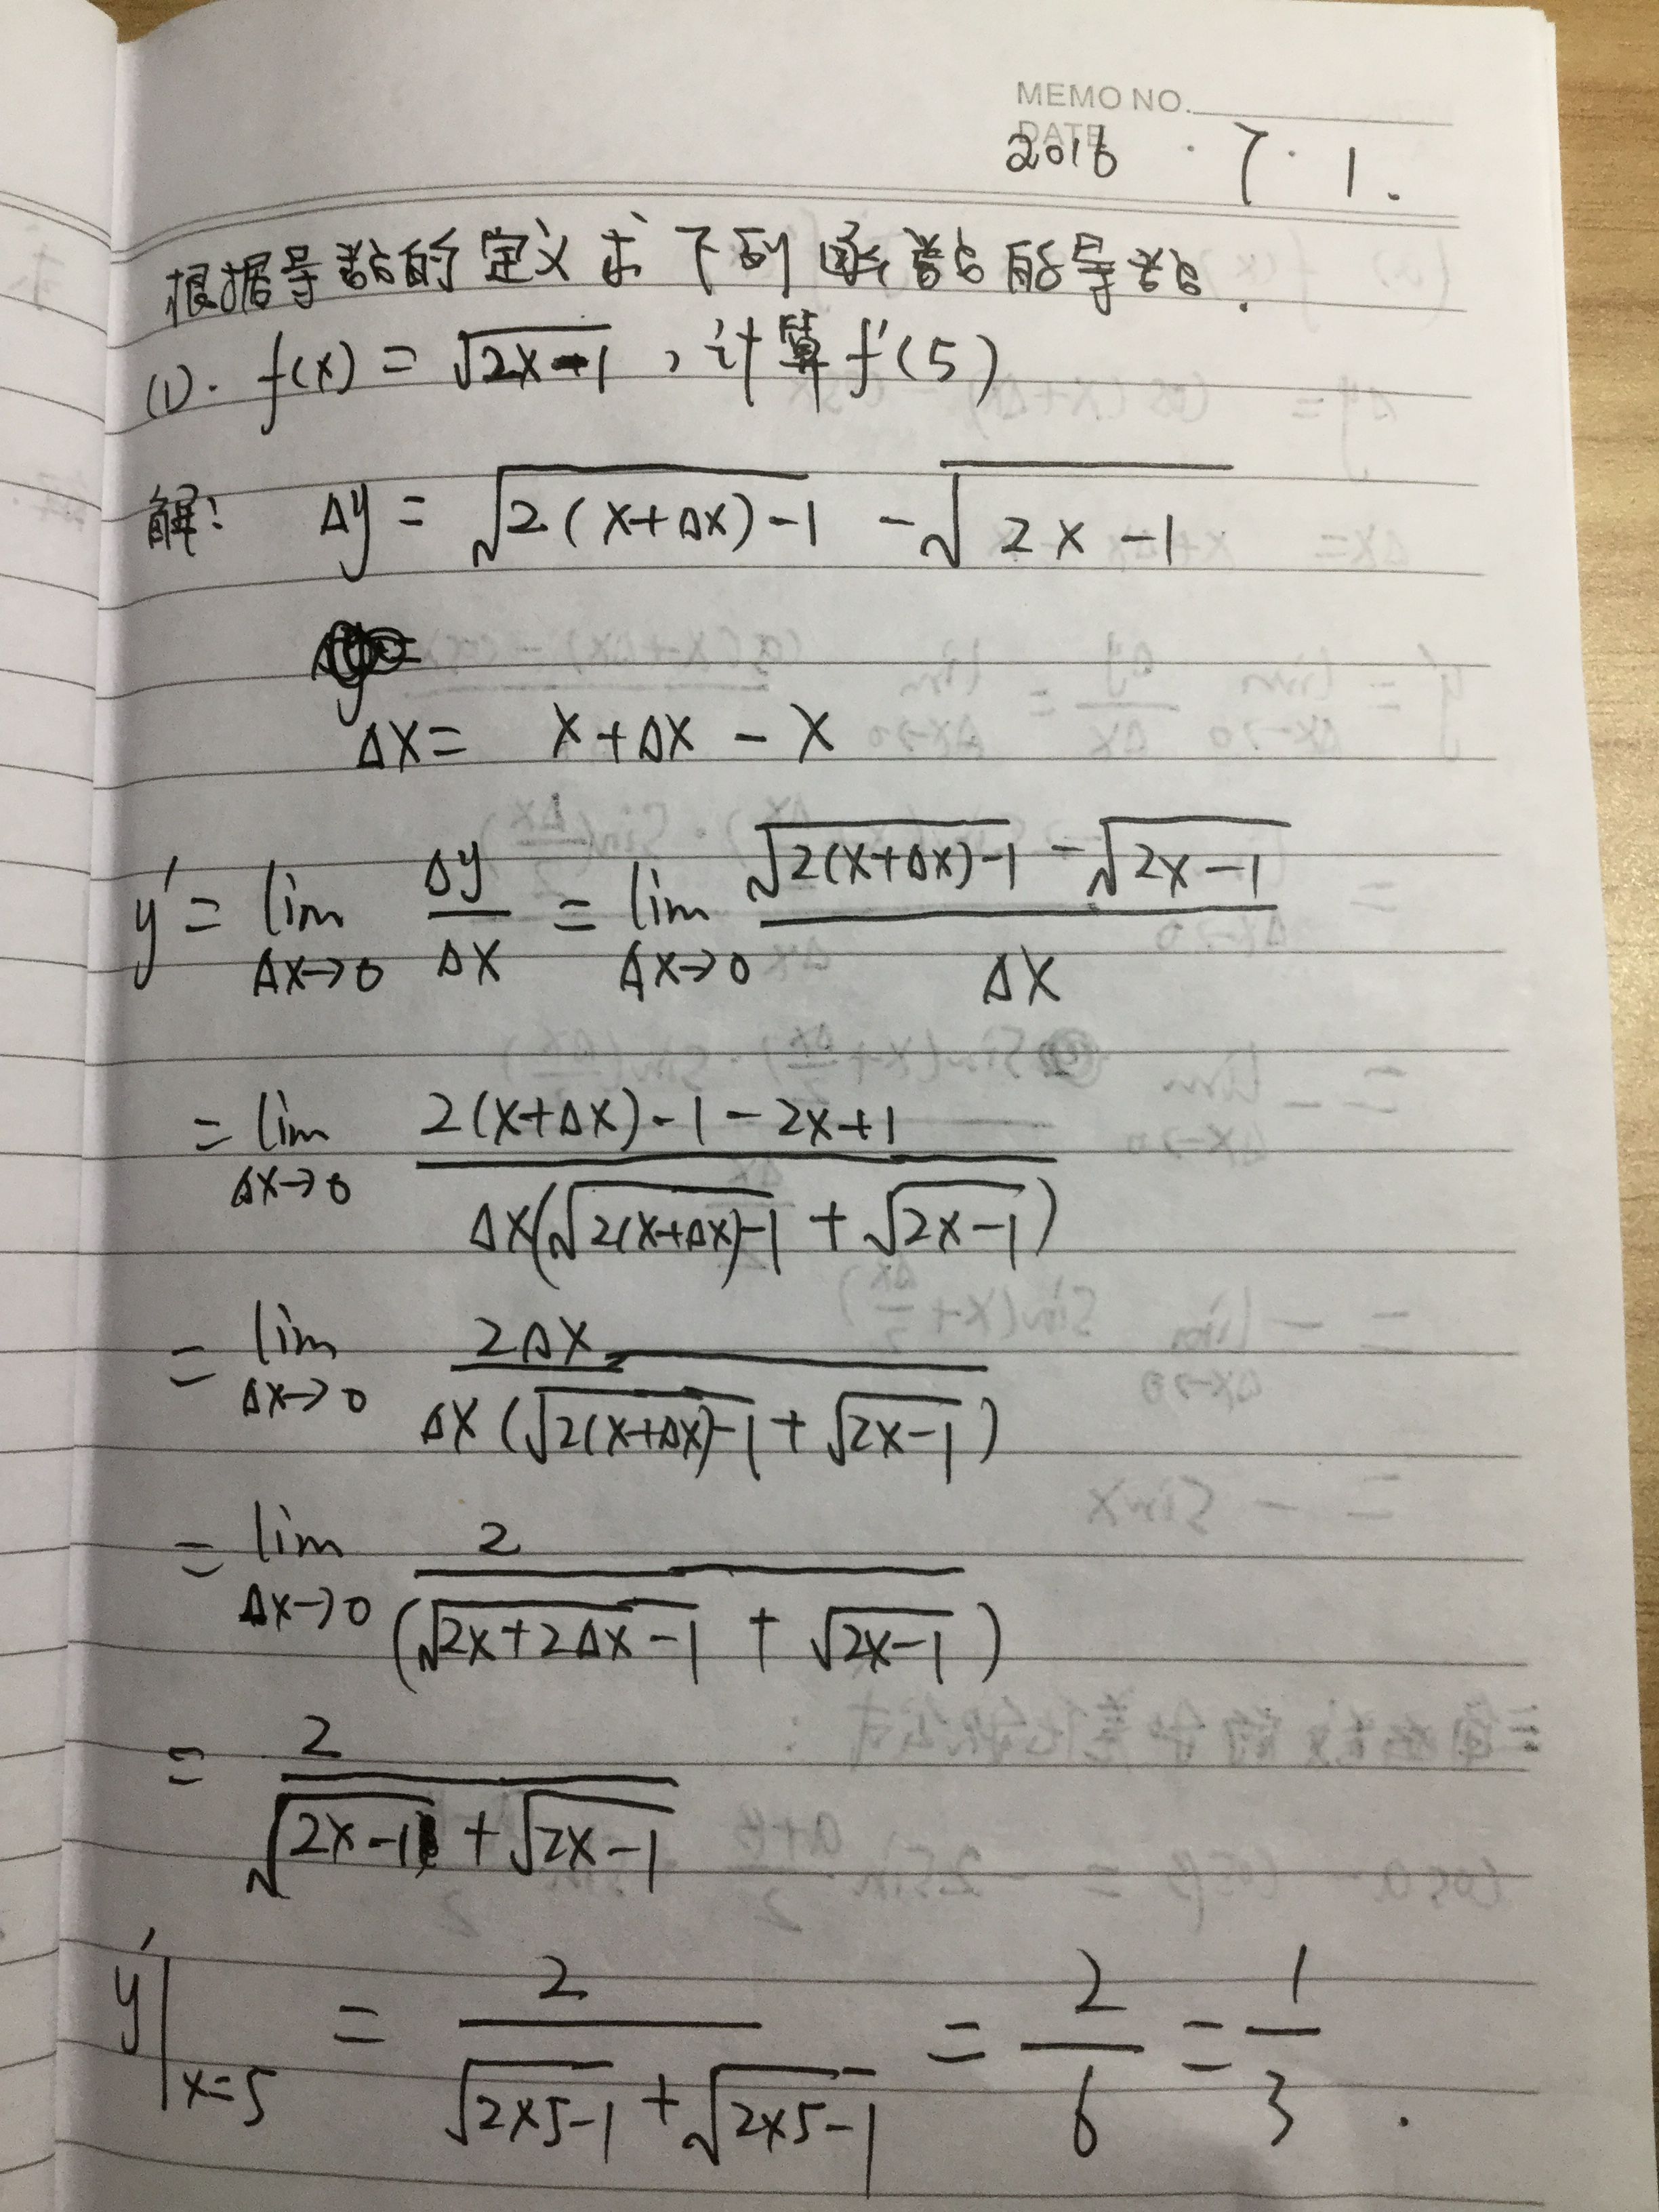 MEMO NO.
DATE
2016 · 7 · 1.
根据导数的定义求下列函数的导数.
(1). f(x) = √(2x-1) , 计算f'(5)
解: Δy = √(2(x+Δx)-1) - √(2x-1)
Δx = x+Δx - x
y' = lim Δx→0 Δy/Δx = lim Δx→0 (√(2(x+Δx)-1) - √(2x-1))/Δx
= lim Δx→0 (2(x+Δx)-1-2x+1)/(Δx(√(2(x+Δx)-1) + √(2x-1)))
= lim Δx→0 2Δx/(Δx(√(2(x+Δx)-1) + √(2x-1)))
= lim Δx→0 2/(√(2x+2Δx-1) + √(2x-1))
= 2/(√(2x-1) + √(2x-1))
y'|x=5 = 2/(√(2×5-1) + √(2×5-1)) = 2/6 = 1/3 .